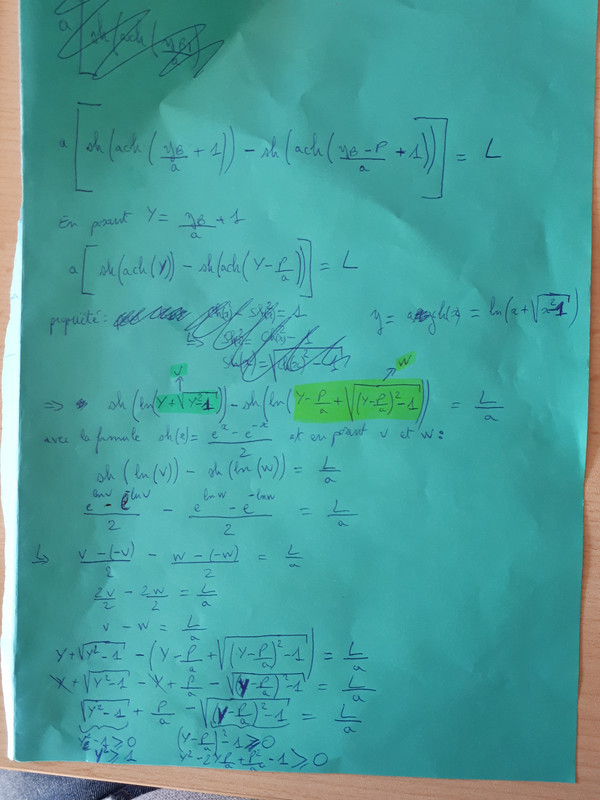 a [ sh(ach(yB/a
a [ sh(ach(yB/a + 1)) - sh(ach((yB - P)/a + 1)) ] = L
En posant Y = yB/a + 1
a [ sh(ach(Y)) - sh(ach(Y - P/a)) ] = L
propriété: ch²(x) - sh²(x) = 1 y = argch(x) = ln(x + √(x² - 1))
↳ sh²(x) = ch²(x) - 1
sh(x) = √(ch(x)² - 1)
v w
=> sh(ln(Y + √(Y² - 1))) - sh(ln(Y - P/a + √((Y - P/a)² - 1))) = L/a
avec la formule sh(x) = (e^x - e^-x)/2 et en posant v et w :
sh(ln(v)) - sh(ln(w)) = L/a
(e^lnv - e^-lnv)/2 - (e^lnw - e^-lnw)/2 = L/a
↳ (v - (-v))/2 - (w - (-w))/2 = L/a
2v/2 - 2w/2 = L/a
v - w = L/a
Y + √(Y² - 1) - (Y - P/a + √((Y - P/a)² - 1)) = L/a
Y + √(Y² - 1) - Y + P/a - √((Y - P/a)² - 1) = L/a
√(Y² - 1) + P/a - √((Y - P/a)² - 1) = L/a
Y² - 1 ≥ 0 (Y - P/a)² - 1 ≥ 0
Y² ≥ 1 Y² - 2YP/a + P²/a² - 1 ≥ 0